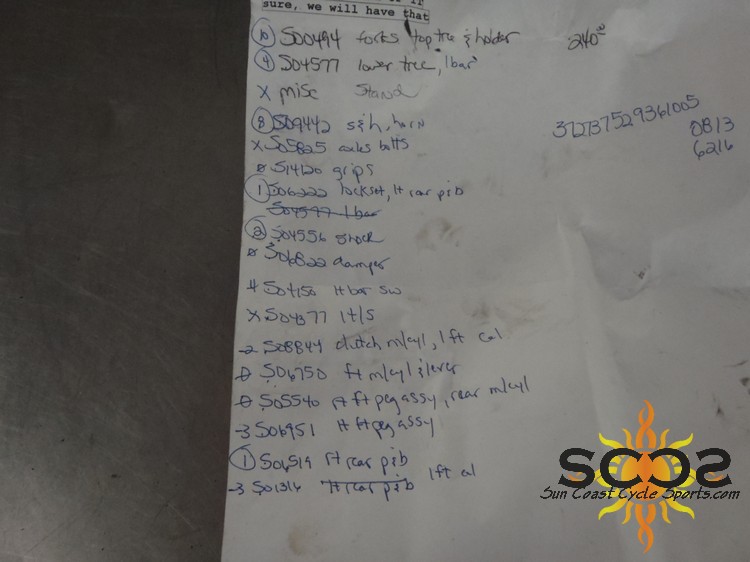 sure, we will have that
10 S00494 forks top tree & holder 240
4 S04577 lower tree, 1 bar
X misc Stand
372737529361005
8 S09442 s&h, horn
0813
6216
X S05825 axles bolts
0 S14120 grips
1 S06222 lockset, lt rear pib
S04577 1 bar
2 S04556 shock
0 S06822 damper
4 S04150 lt bar sw
X S04377 lt/s
2 S08844 clutch m/cyl, 1 ft cal
0 S06750 ft m/cyl & lever
0 S05540 rt ft peg assy, rear m/cyl
3 S06951 lt ft peg assy
1 S06519 rt rear pib
3 S01316 lt rear pib 1 ft cal
SCCS
Sun Coast Cycle Sports.com